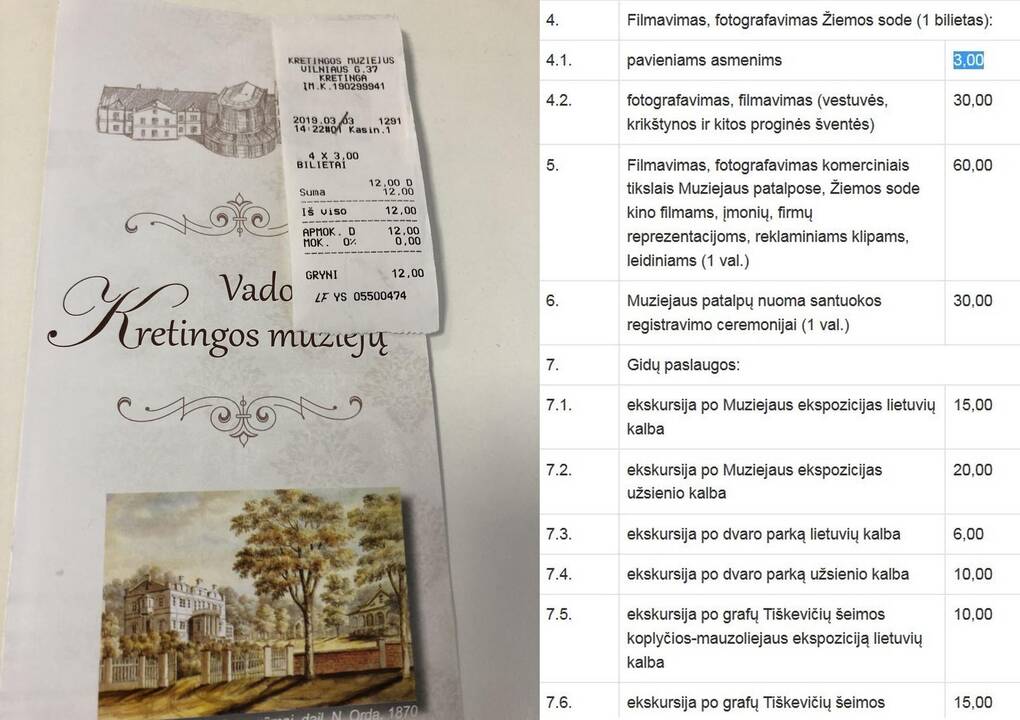 KRETINGOS MUZIEJUS
VILNIAUS G.37
KRETINGA
ĮM.K.190299941
2019.03.03 1291
14:22#01 Kasin.1
4 X 3,00
BILIETAI
12,00 D
Suma 12,00
Iš viso 12,00
APMOK. D 12,00
MOK. 0% 0,00
GRYNI 12,00
LF YS 05500474
Kretingos muziejų
dail. N. Orda, 1870
4. Filmavimas, fotografavimas Žiemos sode (1 bilietas):
4.1. pavieniams asmenims 3,00
4.2. fotografavimas, filmavimas (vestuvės, 30,00
krikštynos ir kitos proginės šventės)
5. Filmavimas, fotografavimas komerciniais 60,00
tikslais Muziejaus patalpose, Žiemos sode
kino filmams, įmonių, firmų
reprezentacijoms, reklaminiams klipams,
leidiniams (1 val.)
6. Muziejaus patalpų nuoma santuokos 30,00
registravimo ceremonijai (1 val.)
7. Gidų paslaugos:
7.1. ekskursija po Muziejaus ekspozicijas lietuvių 15,00
kalba
7.2. ekskursija po Muziejaus ekspozicijas 20,00
užsienio kalba
7.3. ekskursija po dvaro parką lietuvių kalba 6,00
7.4. ekskursija po dvaro parką užsienio kalba 10,00
7.5. ekskursija po grafų Tiškevičių šeimos 10,00
koplyčios-mauzoliejaus ekspoziciją lietuvių
kalba
7.6. ekskursija po grafų Tiškevičių šeimos 15,00